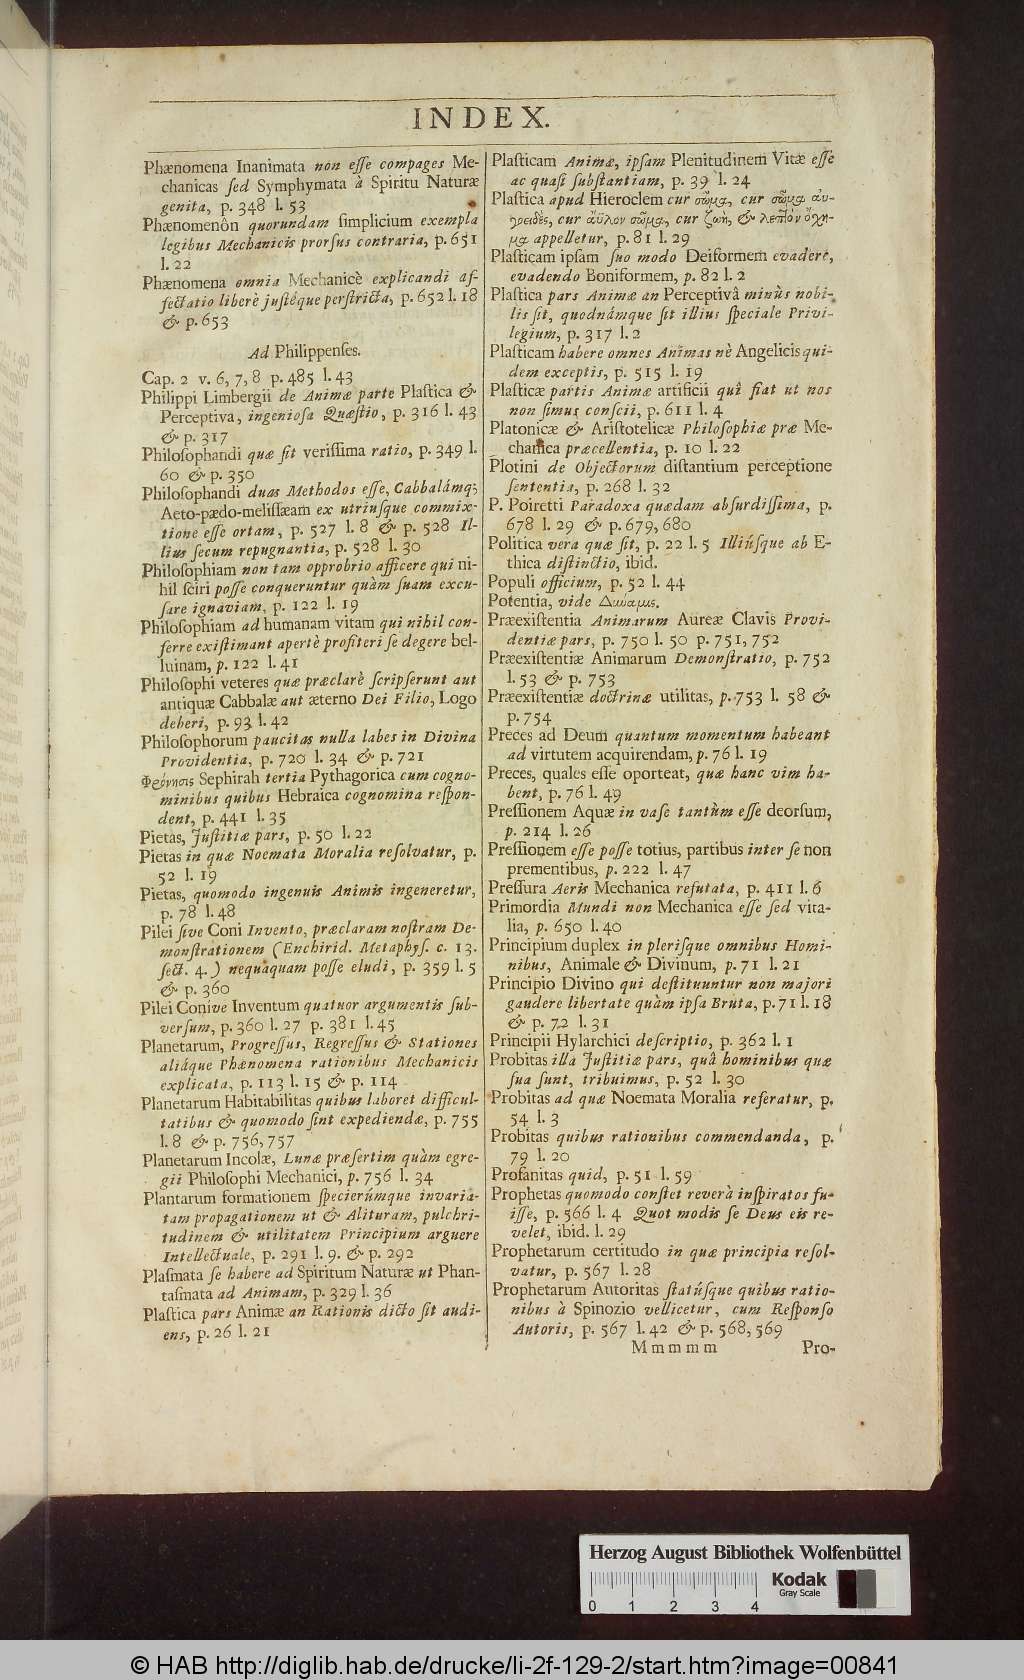 INDEX.
Phænomena Inanimata non eſſe compages Me-
chanicas ſed Symphymata à Spiritu Naturæ
genita, p. 348 l. 53
Phænomenôn quorundam ſimplicium exempla
legibus Mechanicis prorſus contraria, p. 651
l. 22
Phænomena omnia Mechanicè explicandi af-
fectatio liberè juſtéque perſtricta, p. 652 l. 18
& p. 653
Ad Philippenſes.
Cap. 2 v. 6, 7, 8 p. 485 l. 43
Philippi Limbergii de Animæ parte Plaſtica &
Perceptiva, ingenioſa Quæſtio, p. 316 l. 43
& p. 317
Philoſophandi quæ ſit veriſſima ratio, p. 349 l.
60 & p. 350
Philoſophandi duas Methodos eſſe, Cabbalámq;
Aeto-pædo-meliſſæam ex utriuſque commix-
tione eſſe ortam, p. 527 l. 8 & p. 528 Il-
lius ſecum repugnantia, p. 528 l. 30
Philoſophiam non tam opprobrio afficere qui ni-
hil ſciri poſſe conqueruntur quàm ſuam excu-
ſare ignaviam, p. 122 l. 19
Philoſophiam ad humanam vitam qui nihil con-
ferre exiſtimant apertè profiteri ſe degere bel-
luinam, p. 122 l. 41
Philoſophi veteres quæ præclarè ſcripſerunt aut
antiquæ Cabbalæ aut æterno Dei Filio, Logo
deberi, p. 93 l. 42
Philoſophorum paucitas nulla labes in Divina
Providentia, p. 720 l. 34 & p. 721
Φρόνησις Sephirah tertia Pythagorica cum cogno-
minibus quibus Hebraica cognomina reſpon-
dent, p. 441 l. 35
Pietas, Juſtitiæ pars, p. 50 l. 22
Pietas in quæ Noemata Moralia reſolvatur, p.
52 l. 19
Pietas, quomodo ingenuis Animis ingeneretur,
p. 78 l. 48
Pilei ſive Coni Invento, præclaram noſtram De-
monſtrationem (Enchirid. Metaphyſ. c. 13.
ſect. 4.) nequaquam poſſe eludi, p. 359 l. 5
& p. 360
Pilei Conive Inventum quatuor argumentis ſub-
verſum, p. 360 l. 27 p. 381 l. 45
Planetarum, Progreſſus, Regreſſus & Stationes
aliáque Phænomena rationibus Mechanicis
explicata, p. 113 l. 15 & p. 114
Planetarum Habitabilitas quibus laboret difficul-
tatibus & quomodo ſint expediendæ, p. 755
l. 8 & p. 756, 757
Planetarum Incolæ, Lunæ præſertim quàm egre-
gii Philoſophi Mechanici, p. 756 l. 34
Plantarum formationem ſpecierúmque invaria-
tam propagationem ut & Alituram, pulchri-
tudinem & utilitatem Principium arguere
Intellectuale, p. 291 l. 9. & p. 292
Plaſmata ſe habere ad Spiritum Naturæ ut Phan-
taſmata ad Animam, p. 329 l. 36
Plaſtica pars Animæ an Rationis dicto ſit audi-
ens, p. 26 l. 21
Plaſticam Animæ, ipſam Plenitudinem Vitæ eſſe
ac quaſi ſubſtantiam, p. 39 l. 24
Plaſtica apud Hieroclem cur σῶμα, cur σῶμα αὐ-
γοειδὲς, cur ἄϋλον σῶμα, cur ζωὴ, & λεπτὸν ὄχη-
μα appelletur, p. 81 l. 29
Plaſticam ipſam ſuo modo Deiformem evadere,
evadendo Boniformem, p. 82 l. 2
Plaſtica pars Animæ an Perceptivâ minùs nobi-
lis ſit, quodnámque ſit illius ſpeciale Privi-
legium, p. 317 l. 2
Plaſticam habere omnes Animas nè Angelicis qui-
dem exceptis, p. 515 l. 19
Plaſticæ partis Animæ artificii quî fiat ut nos
non ſimus conſcii, p. 611 l. 4
Platonicæ & Ariſtotelicæ Philoſophiæ præ Me-
chanica præcellentia, p. 10 l. 22
Plotini de Objectorum diſtantium perceptione
ſententia, p. 268 l. 32
P. Poiretti Paradoxa quædam abſurdiſſima, p.
678 l. 29 & p. 679, 680
Politica vera quæ ſit, p. 22 l. 5 Illiúſque ab E-
thica diſtinctio, ibid.
Populi officium, p. 52 l. 44
Potentia, vide Δυνάμεις.
Præexiſtentia Animarum Aureæ Clavis Provi-
dentiæ pars, p. 750 l. 50 p. 751, 752
Præexiſtentiæ Animarum Demonſtratio, p. 752
l. 53 & p. 753
Præexiſtentiæ doctrinæ utilitas, p. 753 l. 58 &
p. 754
Preces ad Deum quantum momentum habeant
ad virtutem acquirendam, p. 76 l. 19
Preces, quales eſſe oporteat, quæ hanc vim ha-
bent, p. 76 l. 49
Preſſionem Aquæ in vaſe tantùm eſſe deorſum,
p. 214 l. 26
Preſſionem eſſe poſſe totius, partibus inter ſe non
prementibus, p. 222 l. 47
Preſſura Aeris Mechanica refutata, p. 411 l. 6
Primordia Mundi non Mechanica eſſe ſed vita-
lia, p. 650 l. 40
Principium duplex in pleriſque omnibus Homi-
nibus, Animale & Divinum, p. 71 l. 21
Principio Divino qui deſtituuntur non majori
gaudere libertate quàm ipſa Bruta, p. 71 l. 18
& p. 72 l. 31
Principii Hylarchici deſcriptio, p. 362 l. 1
Probitas illa Juſtitiæ pars, quâ hominibus quæ
ſua ſunt, tribuimus, p. 52 l. 30
Probitas ad quæ Noemata Moralia referatur, p.
54 l. 3
Probitas quibus rationibus commendanda, p.
79 l. 20
Profanitas quid, p. 51 l. 59
Prophetas quomodo conſtet reverà inſpiratos fu-
iſſe, p. 566 l. 4 Quot modis ſe Deus eis re-
velet, ibid. l. 29
Prophetarum certitudo in quæ principia reſol-
vatur, p. 567 l. 28
Prophetarum Autoritas ſtatúſque quibus ratio-
nibus à Spinozio vellicetur, cum Reſponſo
Autoris, p. 567 l. 42 & p. 568, 569
M m m m m Pro-
Herzog August Bibliothek Wolfenbüttel
Kodak
Gray Scale
0 1 2 3 4
© HAB http://diglib.hab.de/drucke/li-2f-129-2/start.htm?image=00841